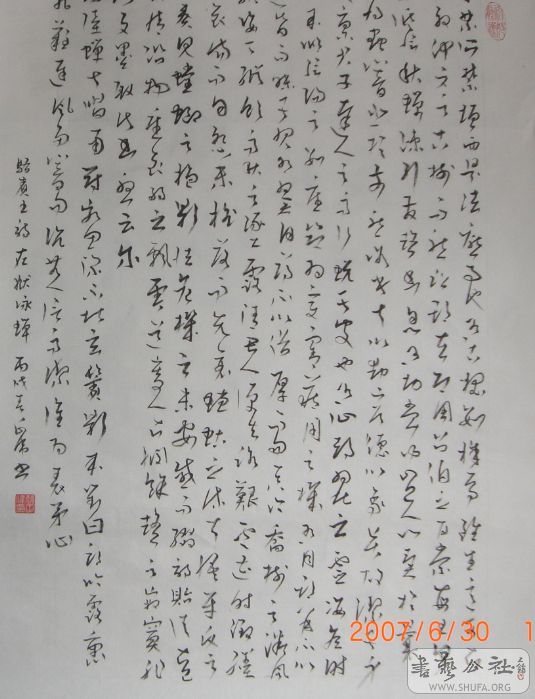 禁所禁垣西是法厅事也有古槐数株焉虽生意可知
殷仲文之古树而听讼斯在即周召伯之甘棠每至夕照
低阴秋蝉疏引发声幽息有切尝闻岂人心异于曩
时将虫响悲于前听嗟乎声以动容德以象贤故洁其身
禀君子达人之高行蜕其皮也有仙都羽化之灵姿候时
而来顺阴阳之数应节为变审藏用之机有目斯开不以
道昏而昧其视有翼自薄不以俗厚而易其真吟乔树之微风
韵姿天纵饮高秋之坠露清畏人知仆失路艰虞遭时徽纆
不哀伤而自怨未摇落而先衰闻蟪蛄之流声悟平反之
已奏见螳螂之抱影怯危机之未安感而缀诗贻诸知己
庶情沿物应哀弱羽之飘零道寄人知悯余声之寂寞非
谓文墨取代幽忧云尔
西陆蝉声唱南冠客思深不堪玄鬓影来对白头吟露重
飞难进风多响易沉无人信高洁谁为表予心
骆宾王诗在狱咏蝉 丙戌春 书
2007/6/30 1
書藝公社
WWW.SHUFA.ORG